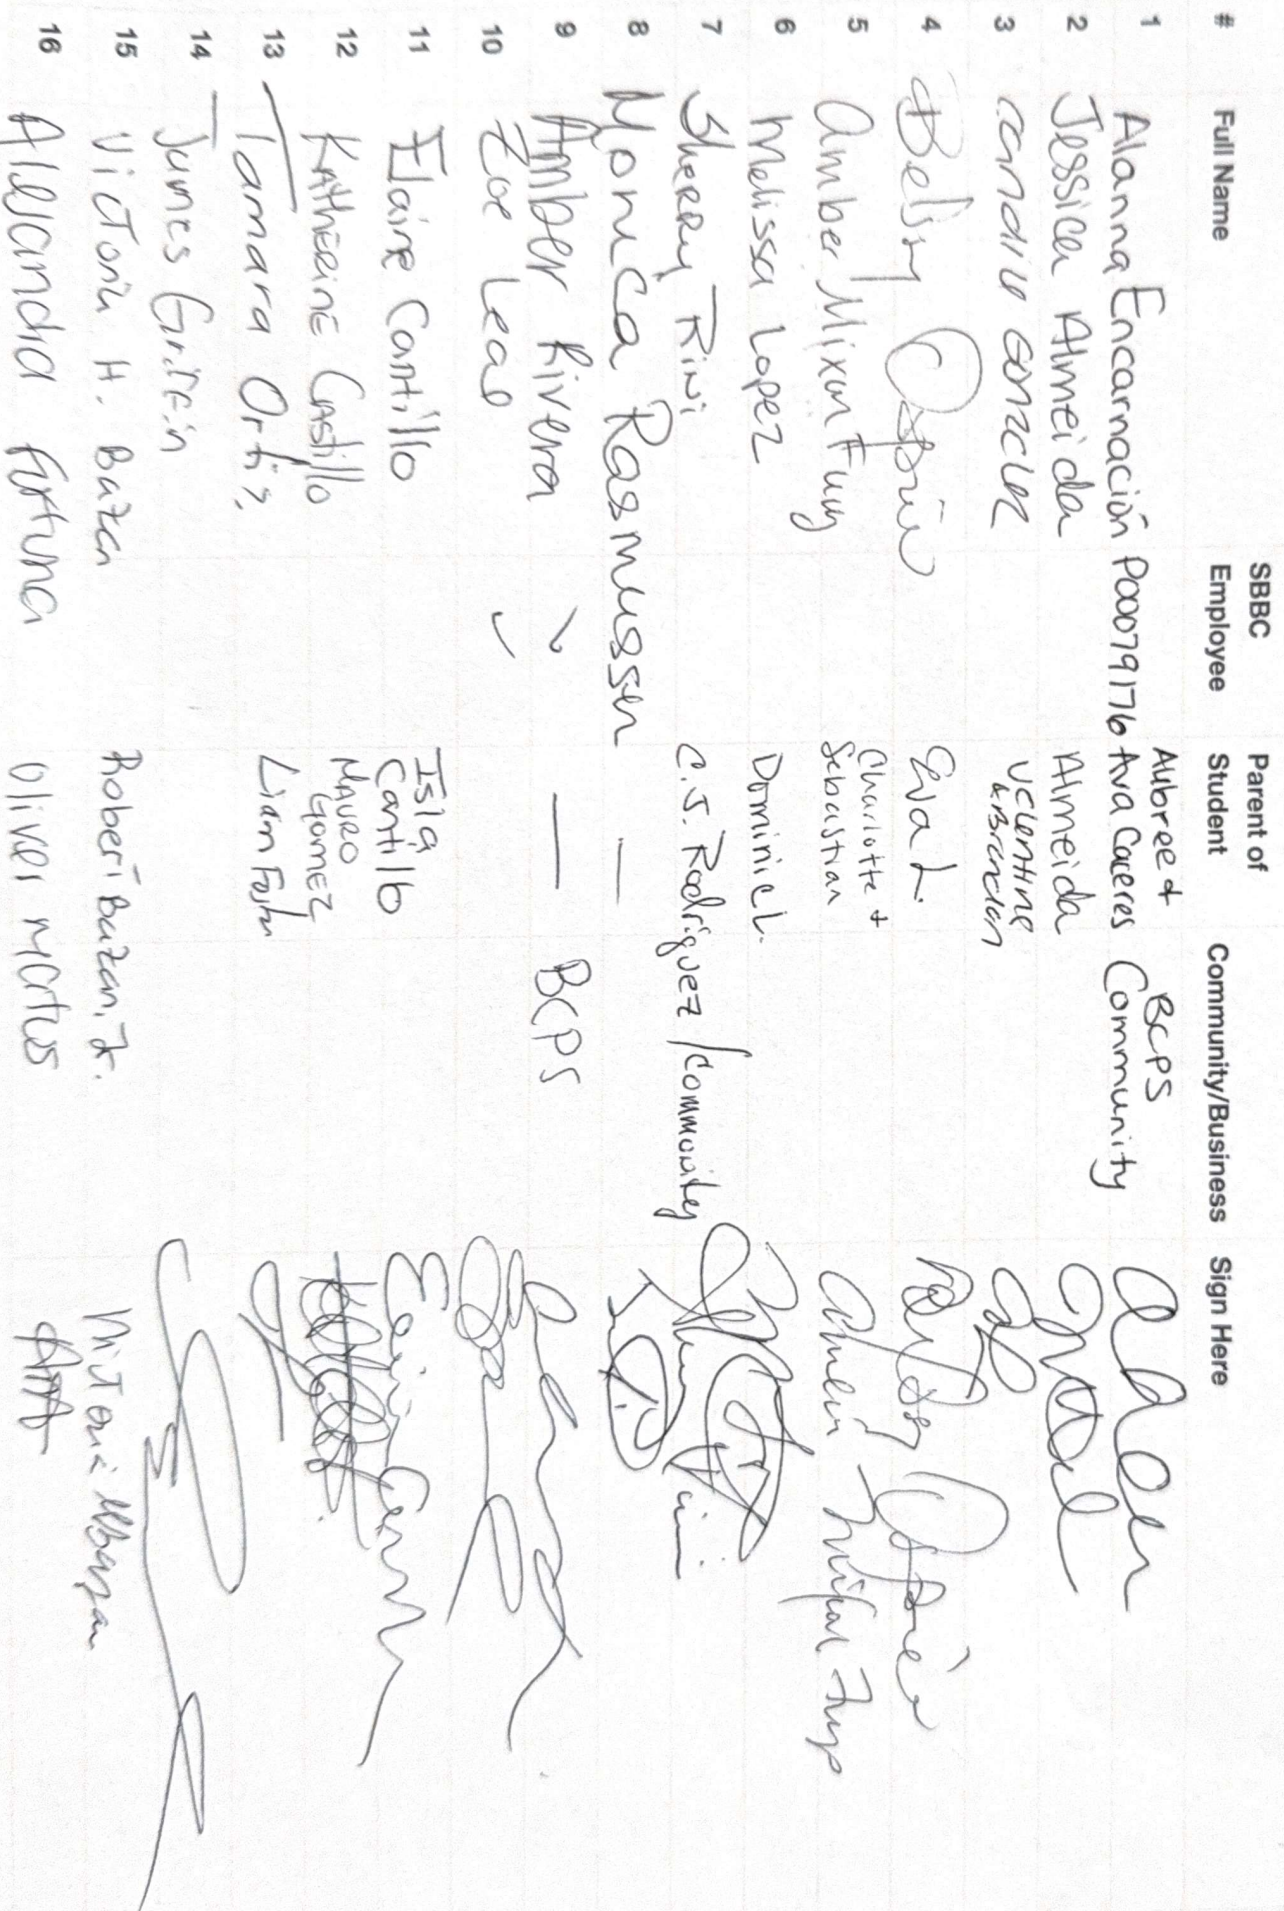 # Full Name SBBC Employee Parent of Student Community/Business Sign Here
1 Alanna Encarnación P00079176 Aubree & Ava Caceres BCPS Community
2 Jessica Almeida Almeida
3 Candido Gonzalez Valentina & Brandon
4 Belsy Osorio Eva L.
5 Amber Mixon Funy Charlotte + Sebastian
6 Melissa Lopez Dominic L.
7 Sherry Rini C.J. Rodriguez / Community
8 Monica Rasmussen —
9 Amber Rivera ✓ — BCPS
10 Zoe Leao ✓
11 Elaine Cantillo Isla Cantillo
12 Katherine Castillo Mauro Gomez
13 Tamara Ortis Liam Foster
14 James Griffin
15 Victoria H. Bazan Robert Bazan, Jr.
16 Alejandra Fortuna Oliver Matus